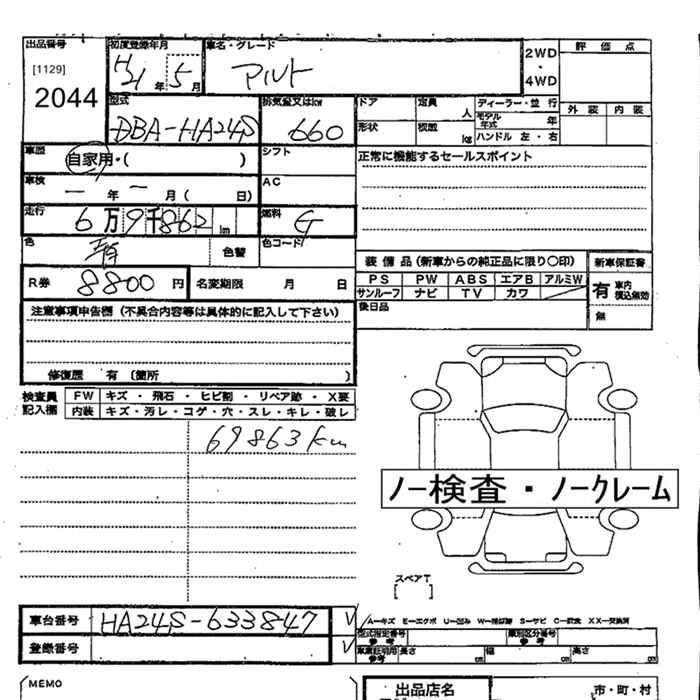 出品番号 初度登録年月 車名・グレード
[1129] H21年 5月 アルト 2WD・4WD 評価点
2044
型式 排気量又はkw ドア 定員 人 ディーラー・並行 外装 内装
DBA-HA24S 660 形状 積載 kg モデル年式 年
ハンドル 左・右
車歴 自家用・( ) シフト 正常に機能するセールスポイント
車検 ー年 ー月( 日) AC
走行 6万9千862 km 燃料 G
色 色替 色コード 装備品(新車からの純正品に限り○印) 新車保証書
R券 8800円 名変期限 月 日 PS PW ABS エアB アルミW 有 車内積込無効
サンルーフ ナビ TV カワ
後日品 無
注意事項申告欄(不具合内容等は具体的に記入して下さい)
修復歴 有〔箇所 〕
検査員記入欄 FW キズ・飛石・ヒビ割・リペア跡・X要
内装 キズ・汚レ・コゲ・穴・スレ・キレ・破レ
69863km
ノー検査・ノークレーム
スペアT
[ ]
車台番号 HA24S-633847 レ A-キズ E-エクボ U-凹み S-サビ
型式指定番号 参考 類別区分番号 参考
登録番号 レ 車庫証明用 参考 長さ cm 幅 cm 高さ cm
MEMO 出品店名 市・町・村